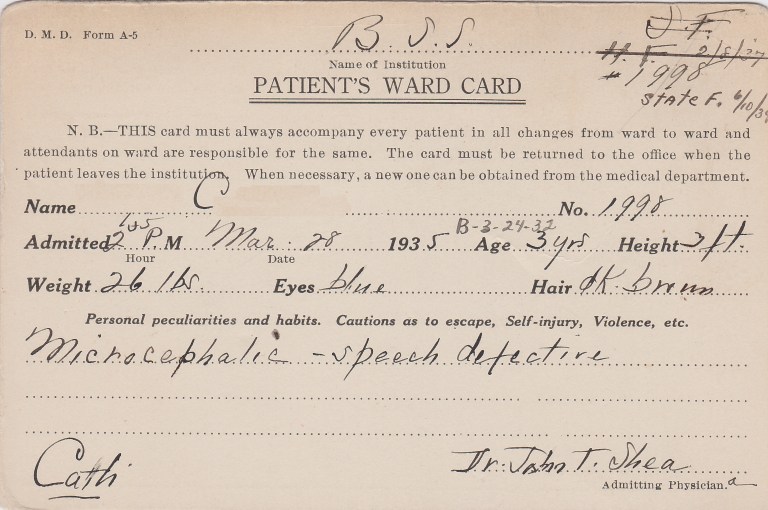 D. M. D. Form A-5
B. S. S.
Name of Institution
PATIENT'S WARD CARD
J. F.
H. F. 2/8/37
# 1998
STATE F. 6/10/39
N. B.—THIS card must always accompany every patient in all changes from ward to ward and
attendants on ward are responsible for the same. The card must be returned to the office when the
patient leaves the institution. When necessary, a new one can be obtained from the medical department.
Name C No. 1998
B-3-24-32
Admitted 2 P. M Mar. 28 1935 Age 3 yrs Height 3 ft.
Hour Date
Weight 26 lbs. Eyes blue Hair dk. brown
Personal peculiarities and habits. Cautions as to escape, Self-injury, Violence, etc.
Microcephalic - speech defective
Cath Dr. John T. Shea
Admitting Physician.